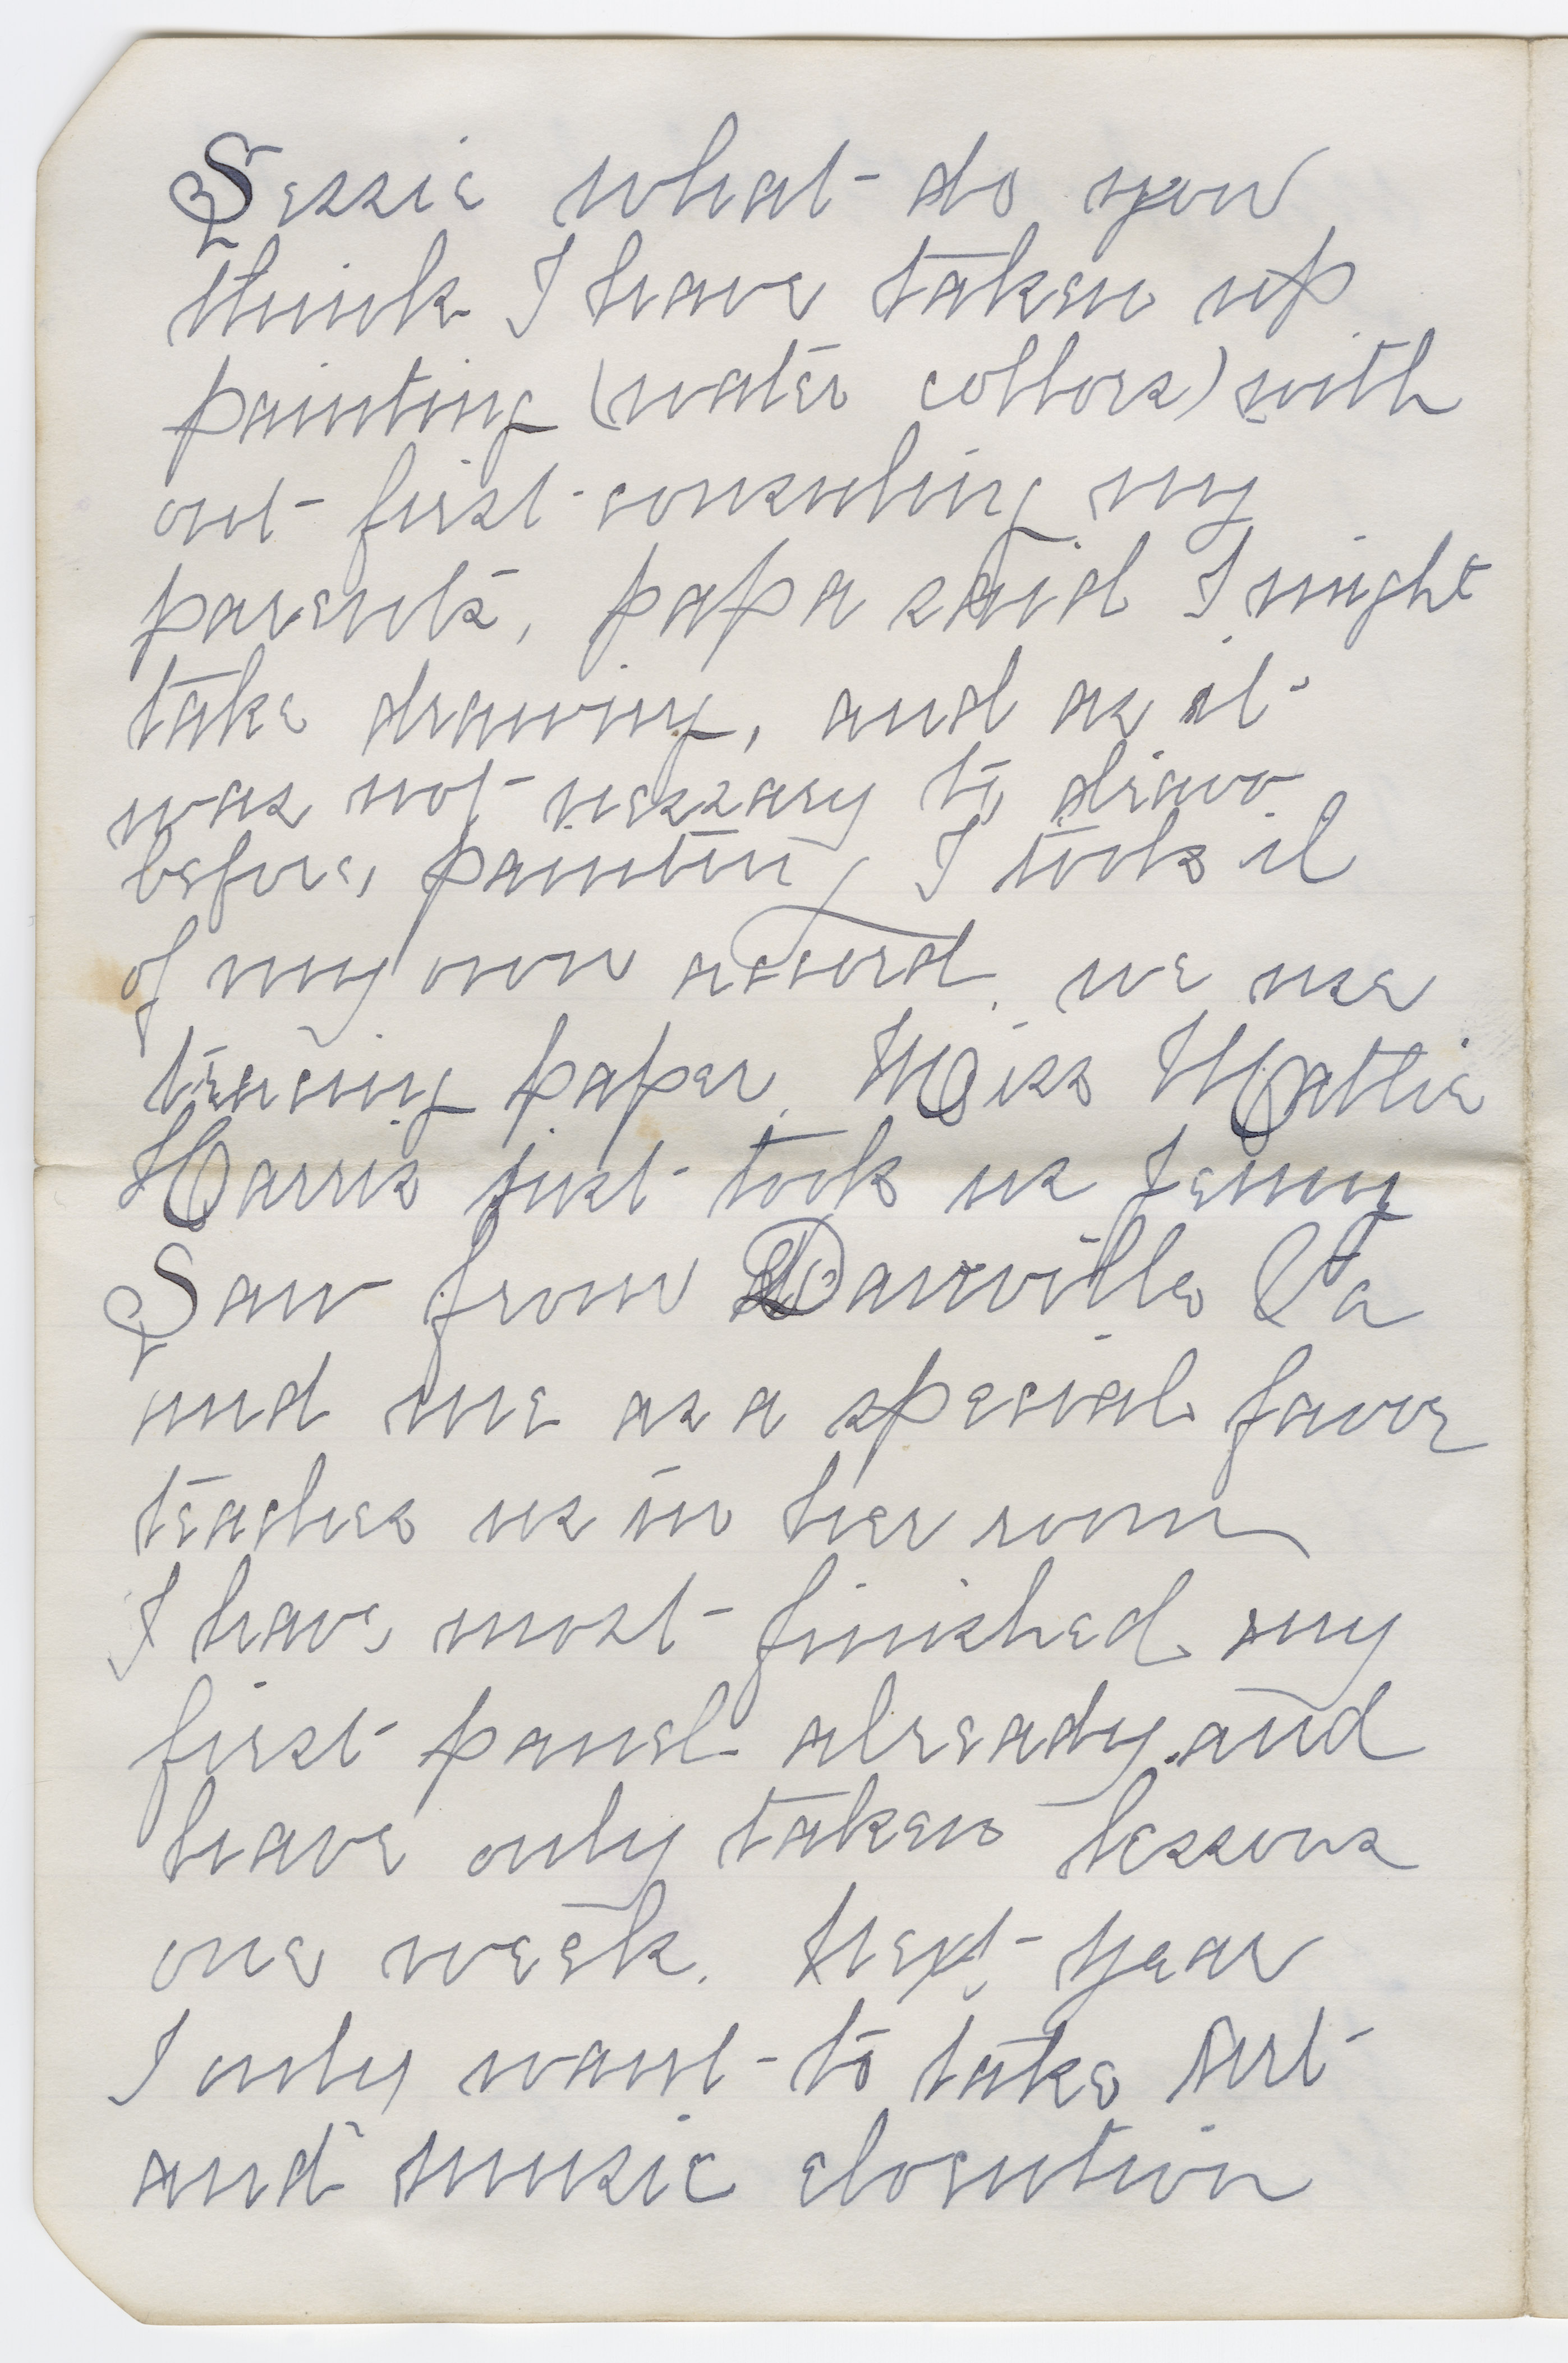 Sessie what do you
think I have taken up
painting (water collors) with
out first consuling my
parents, papa said I might
take drawing, and as it
was not nessary to draw
before, painting I took it
of my own accord. we use
tracing paper. Miss Mattie
Harris just took us Jenny
Law from Danville Va
and me as a special favor
teaches us in her room
I have most finished my
first panel already. and
have only taken lessons
one week. Next year
I only want to take Art
and music elocution